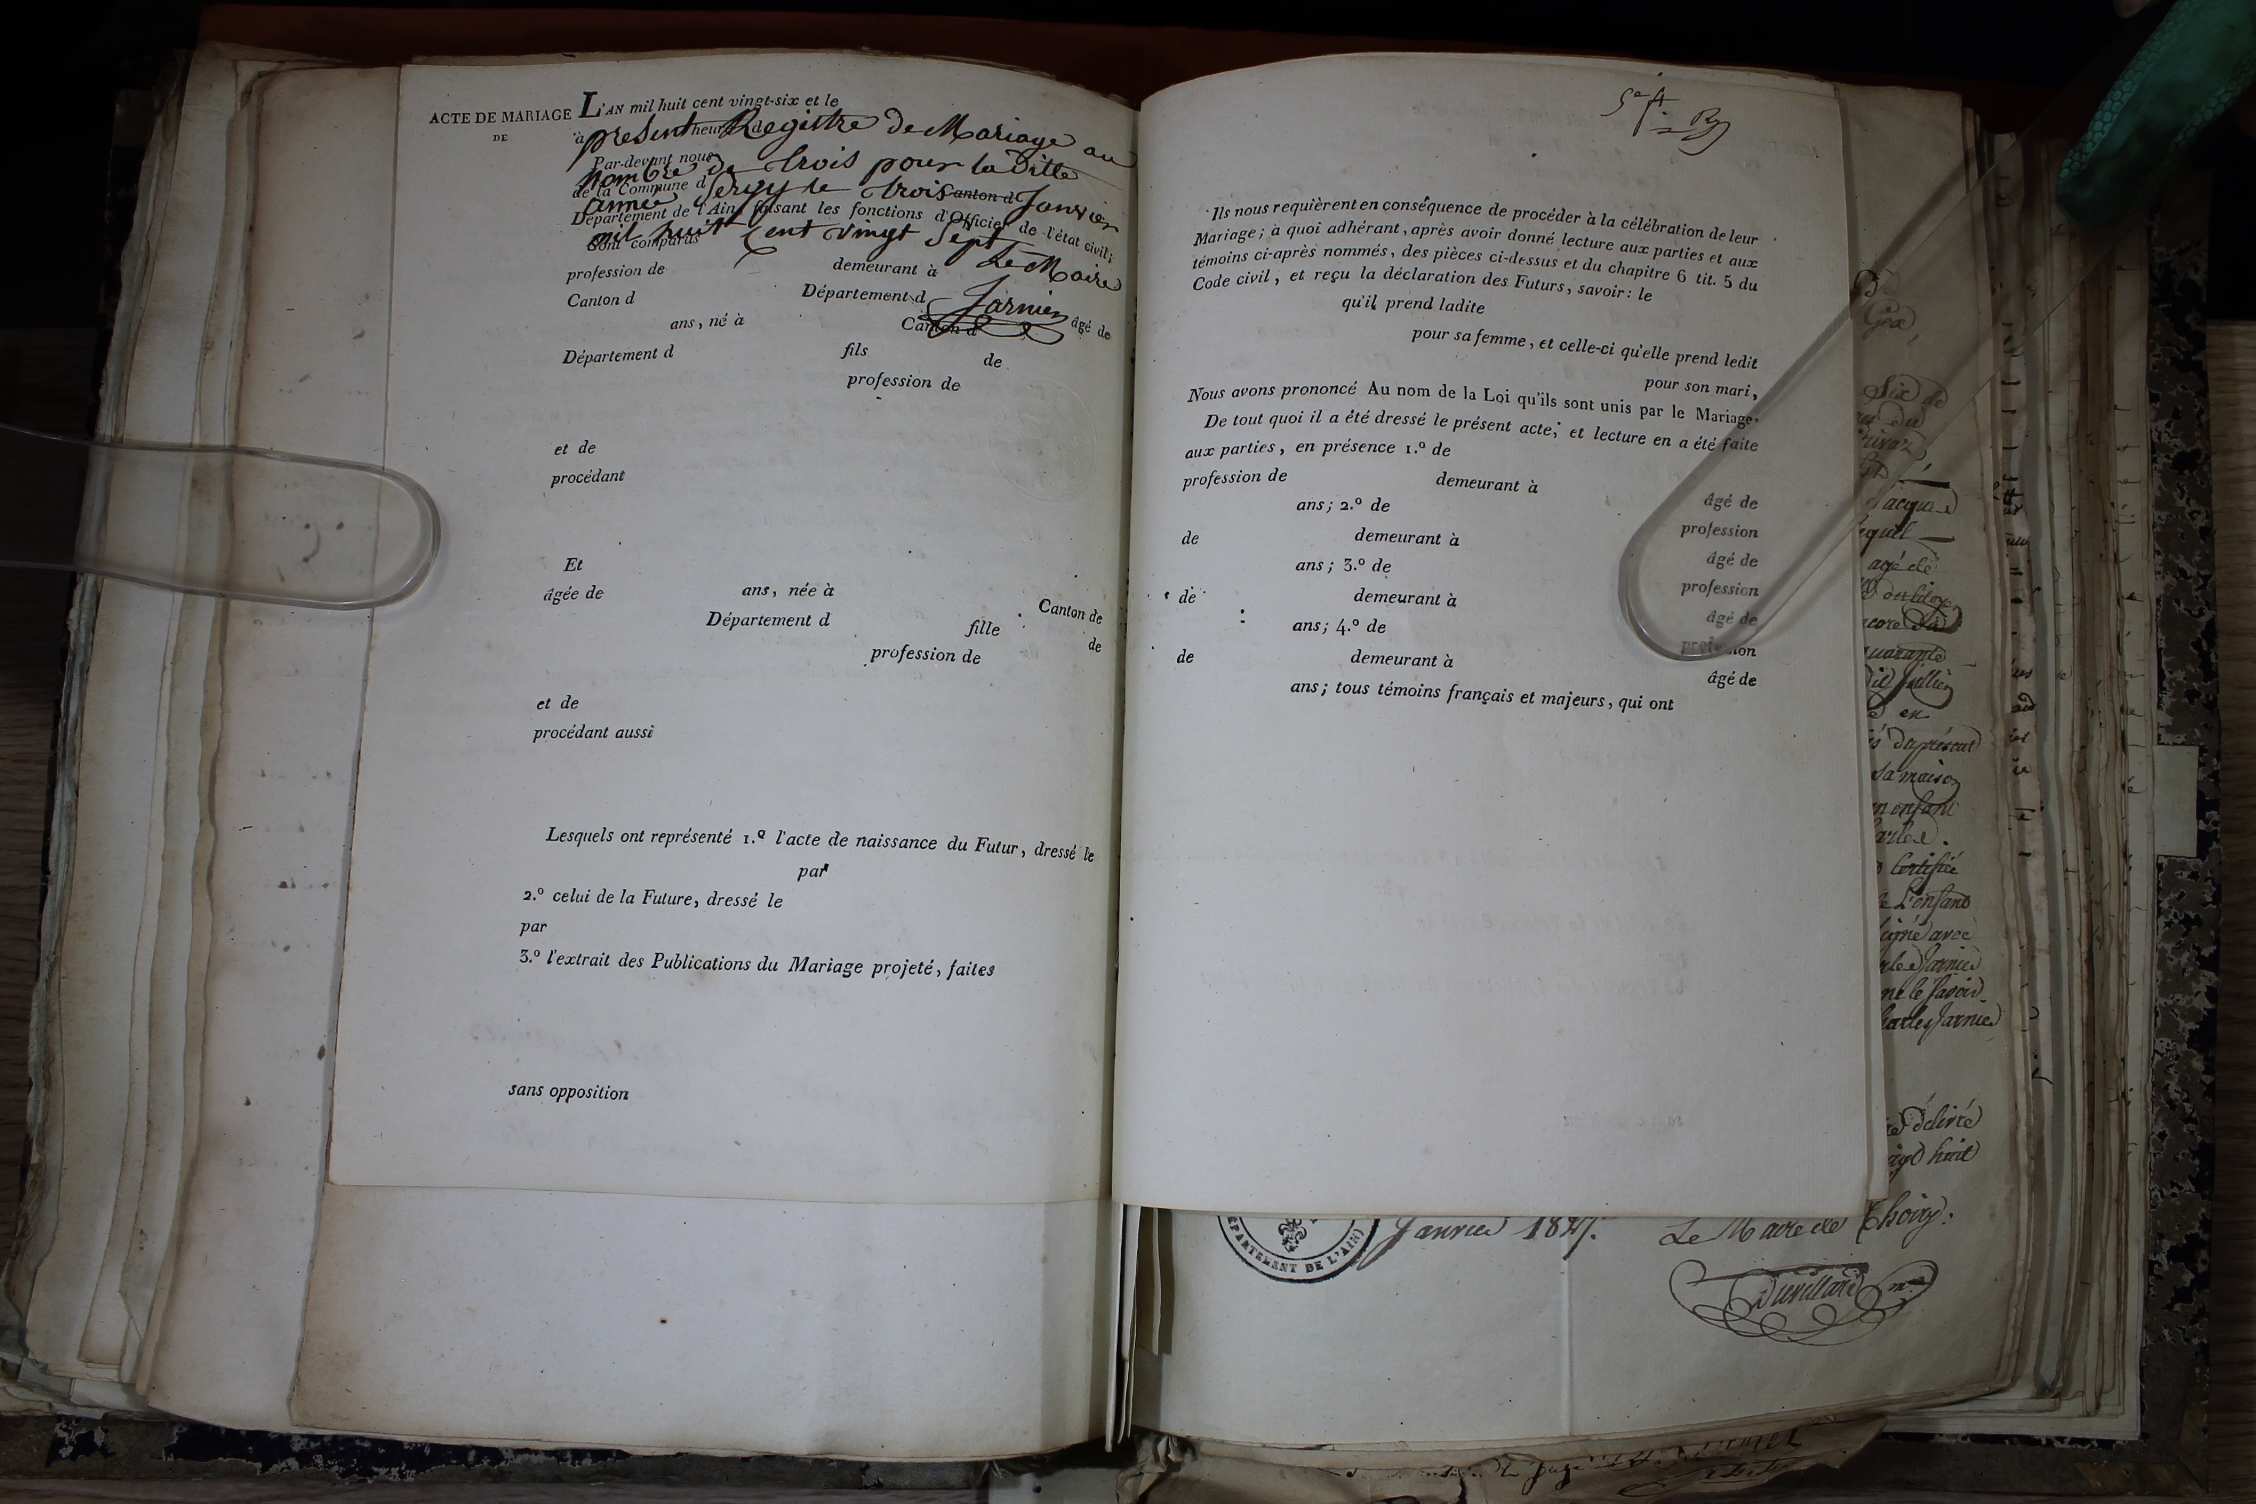 ACTE DE MARIAGE
DE
L'AN mil huit cent vingt-six et le
à heure d
present Registre de Mariage au
Par-devant nous
nombre de trois pour la ditte
de la Commune d Canton d
année Sergy le trois Janvier
Département de l'Ain, faisant les fonctions d'Officier de l'état civil;
mil huit Cent vingt Sept
Sont comparus
Le Maire
profession de demeurant à
Canton d Département d
Jarnier
âgé de
ans, né à Canton d
Département d fils de
profession de
et de
procédant
Et
âgée de ans, née à Canton de
Département d fille de
profession de
et de
procédant aussi
Lesquels ont représenté 1.º l'acte de naissance du Futur, dressé le
par
2.º celui de la Future, dressé le
par
3.º l'extrait des Publications du Mariage projeté, faites
sans opposition
Ils nous requièrent en conséquence de procéder à la célébration de leur
Mariage; à quoi adhérant, après avoir donné lecture aux parties et aux
témoins ci-après nommés, des pièces ci-dessus et du chapitre 6 tit. 5 du
Code civil, et reçu la déclaration des Futurs, savoir: le
qu'il prend ladite
pour sa femme, et celle-ci qu'elle prend ledit
pour son mari,
Nous avons prononcé Au nom de la Loi qu'ils sont unis par le Mariage.
De tout quoi il a été dressé le présent acte; et lecture en a été faite
aux parties, en présence 1.º de
profession de demeurant à âgé de
ans; 2.º de profession
de demeurant à âgé de
ans; 3.º de profession
de demeurant à âgé de
ans; 4.º de profession
de demeurant à âgé de
ans; tous témoins français et majeurs, qui ont
Gex,
Six de
agé de
quarante
en
sa maison
enfant
certifié
de L'enfant
signé avec
Jarnier
ne le Savoir
Charles Jarnier
délivré
vingt huit
DÉPARTEMENT DE L'AIN
Janvier 1827.
Le Maire de Thoiry.
Duvillard m.re